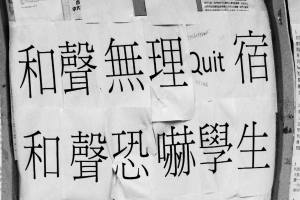 和聲無理Quit宿
和聲恐嚇學生